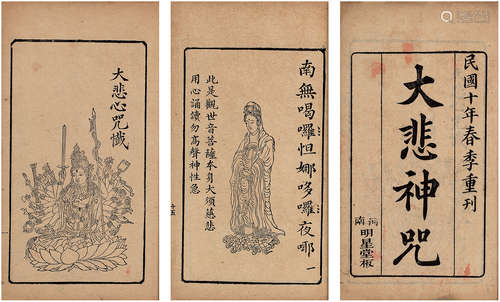 民國十年春季重刊
大悲神咒
明星堂板
南無喝囉怛娜哆囉夜㖿 一
此是觀世音菩薩本身大須慈悲
用心誦讀勿高聲神性急
大悲心咒懺